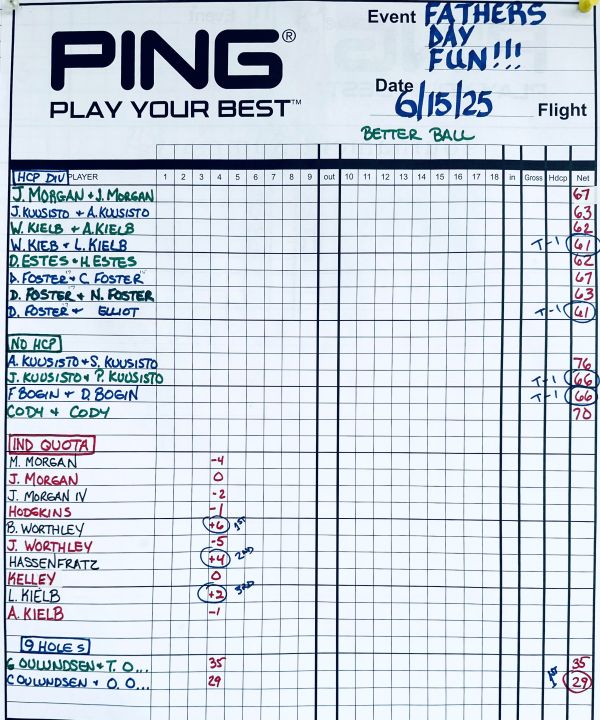 PING®
PLAY YOUR BEST™
Event FATHERS DAY FUN!!!
Date 6/15/25 Flight
BETTER BALL
HCP DIV PLAYER 1 2 3 4 5 6 7 8 9 out 10 11 12 13 14 15 16 17 18 in Gross Hdcp Net
J. MORGAN + J. MORGAN 67
J. KUUSISTO + A. KUUSISTO 63
W. KIELB + A. KIELB 62
W. KIEB + L. KIELB T-1 61
D. ESTES + H. ESTES 62
D. FOSTER + C FOSTER 67
D. FOSTER + N. FOSTER 63
D. FOSTER + ELLIOT T-1 61
NO HCP
A. KUUSISTO + S. KUUSISTO 76
J. KUUSISTO + P. KUUSISTO T-1 66
F BOGIN + D. BOGIN T-1 66
CODY + CODY 70
IND QUOTA
M. MORGAN -4
J. MORGAN 0
J. MORGAN IV -2
HODGKINS -1
B. WORTHLEY +6 1ST
J. WORTHLEY -5
HASSENFRATZ +4 2ND
KELLEY 0
L. KIELB +2 3RD
A. KIELB -1
9 HOLES
G OULUNDSEN + T. O... 35 35
C OULUNDSEN + O. O... 29 1ST 29